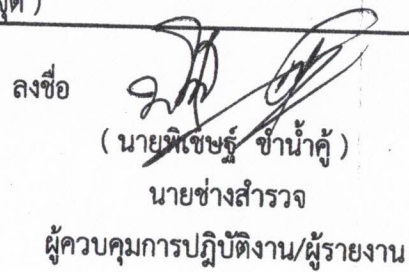 ลงชื่อ
( นายพิเชษฐ์ ชำน้ำคู้ )
นายช่างสำรวจ
ผู้ควบคุมการปฏิบัติงาน/ผู้รายงาน